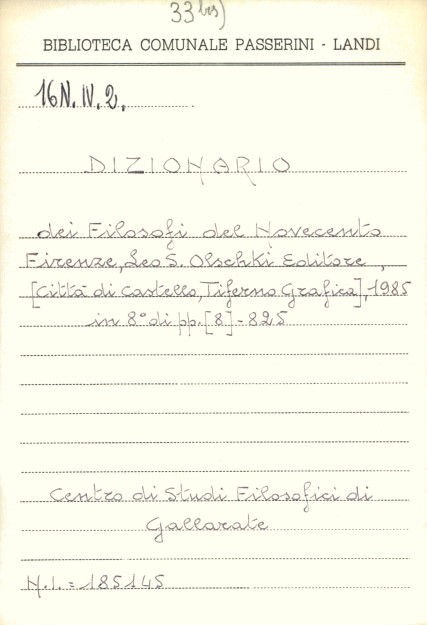 33 bis)
BIBLIOTECA COMUNALE PASSERINI - LANDI
16N.IV.2.
DIZIONARIO
dei Filosofi del Novecento
Firenze, Leo S. Olschki Editore,
[Città di Castello, Tiferno Grafica], 1985
in 8° di pp. [8] - 825
Centro di Studi Filosofici di
Gallarate
N.I. = 185145